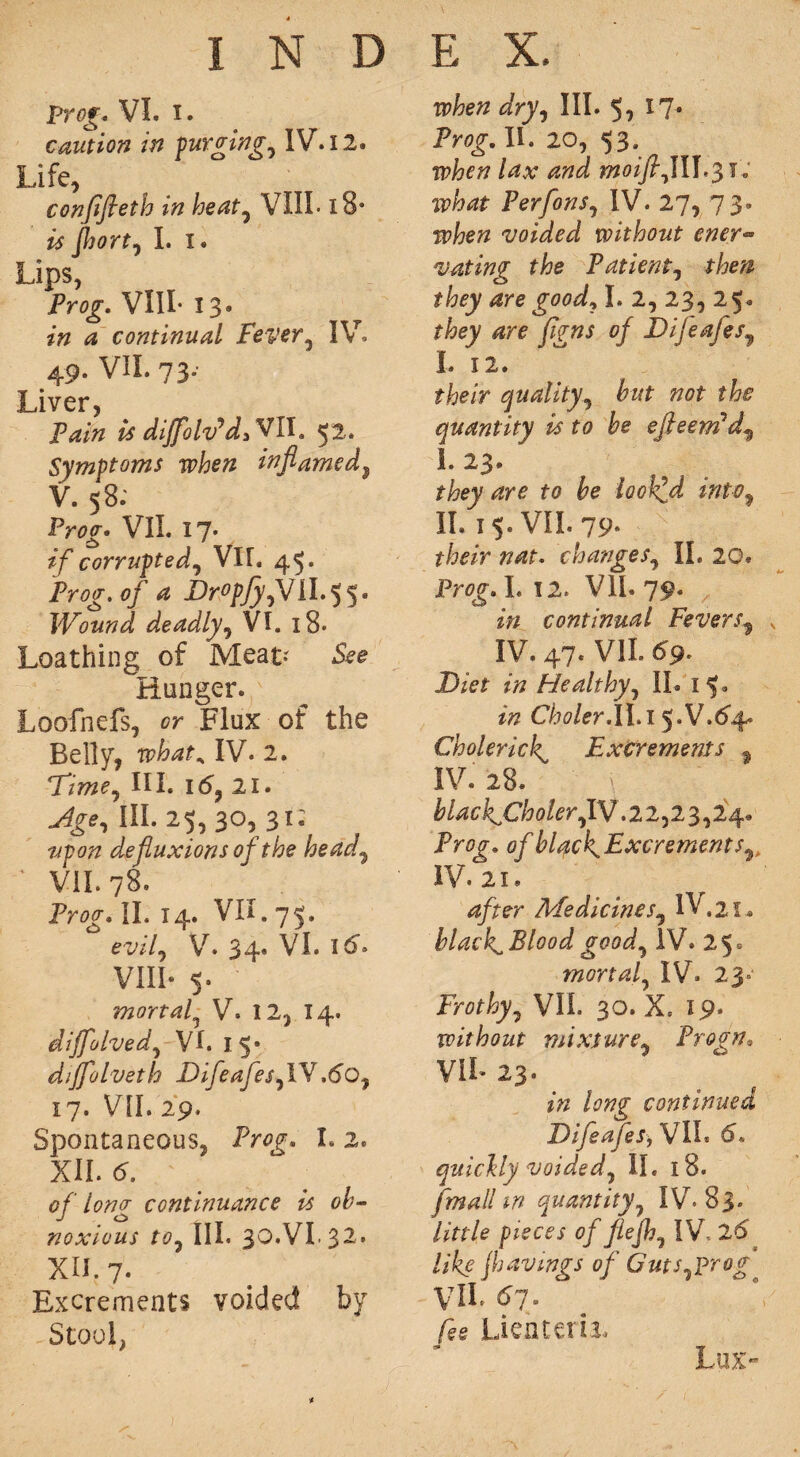 I N D E X.
Prog. VI. 1.
caution in purging, IV. 12.
Life,
conſiſteth in heat, VIII. 18.
is ſhort, I. 1.
Lips,
Prog. VIII. 13.
in a continual Fever, IV.
49. VII. 73.
Liver,
Pain is diſſolv'd, VII. 52.
Symptoms when inflamed,
V. 58.
Prog. VII. 17.
if corrupted, VII. 45.
Prog. of a Dropſy, VII. 55.
Wound deadly, VI. 18.
Loathing of Meat. See
Hunger.
Looſneſs, or Flux of the
Belly, what, IV. 2.
Time, III. 16, 21.
Age, III. 25, 30, 31.
upon defluxions of the head,
VII. 78.
Prog. II. 14. VII. 75.
evil, V. 34. VI. 16.
VIII. 5.
mortal, V. 12, 14.
diſſolved, VI. 15.
diſſolveth Diſeaſes, IV. 60,
17. VII. 29.
Spontaneous, Prog. I. 2.
XII. 6.
of long continuance is ob-
noxious to, III. 30. VI. 32.
XII. 7.
Excrements voided by
Stool,
when dry, III. 5, 17.
Prog. II. 20, 53.
when lax and moiſt, III. 31.
what Perſons, IV. 27, 73.
when voided without ener-
vating the Patient, then
they are good, I. 2, 23, 25.
they are ſigns of Diſeaſes,
I. 12.
their quality, but not the
quantity is to be eſteem'd,
I. 23.
they are to be look'd into,
II. 15. VII. 79.
their nat. changes, II. 20.
Prog. I. 12. VII. 79.
in continual Fevers,
IV. 47. VII. 69.
Diet in Healthy, II. 15.
in Choler. II. 15. V. 64.
Cholerick Excrements,
IV. 28.
black Choler, IV. 22, 23, 24.
Prog. of black Excrements,
IV. 21.
after Medicines, IV. 21.
black Blood good, IV. 25.
mortal, IV. 23.
Frothy, VII. 30. X. 19.
without mixture, Progn.
VII. 23.
in long continued
Diſeaſes, VII. 6.
quickly voided, II. 18.
ſmall in quantity, IV. 83.
little pieces of fleſh, IV. 26
like ſhavings of Guts, prog
VII. 67.
ſee Lienteria.
Lux-